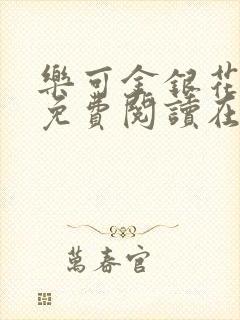 樂可金銀花
免費閱讀在
萬春官